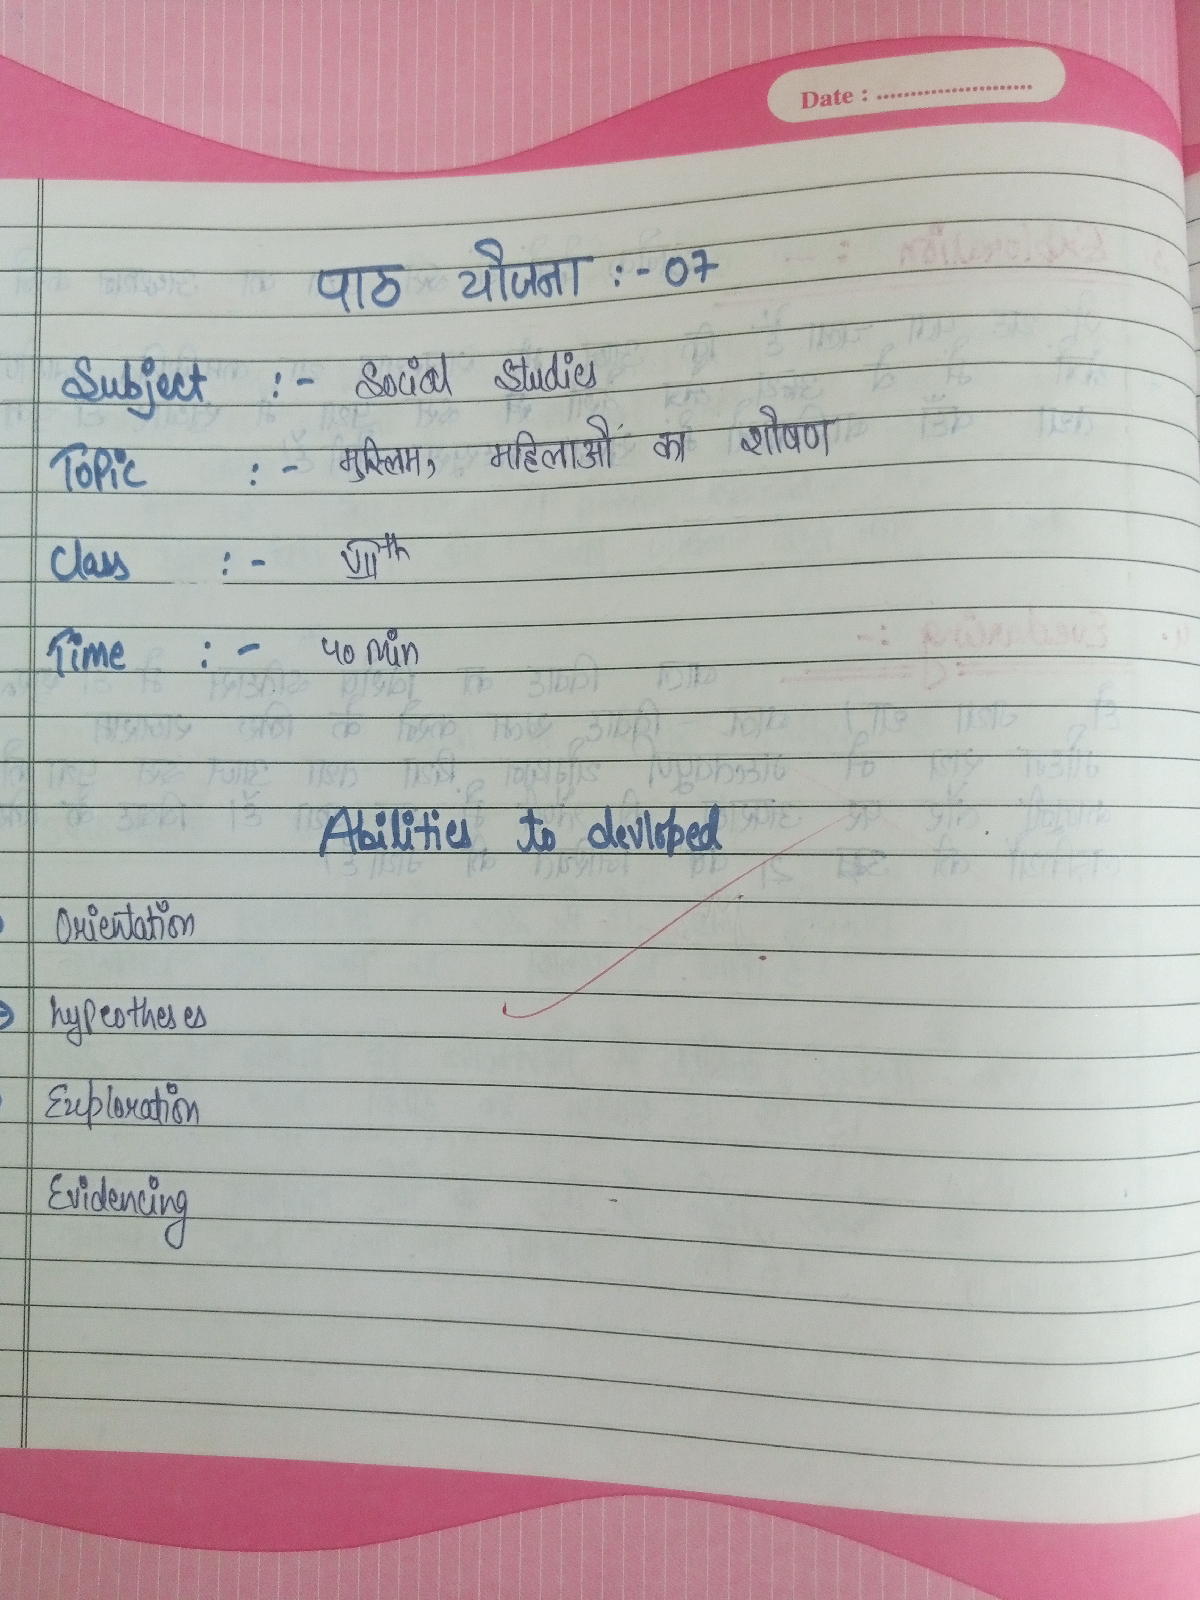 Date : ........................
पाठ यौजना :- 07
Subject :- Social Studies
Topic :- मुस्लिम, महिलाऔं का शौषण
Class :- VIIth
Time :- 40 Min
Abilities to devloped
Orientation
hypeotheses
Exploration
Evidencing